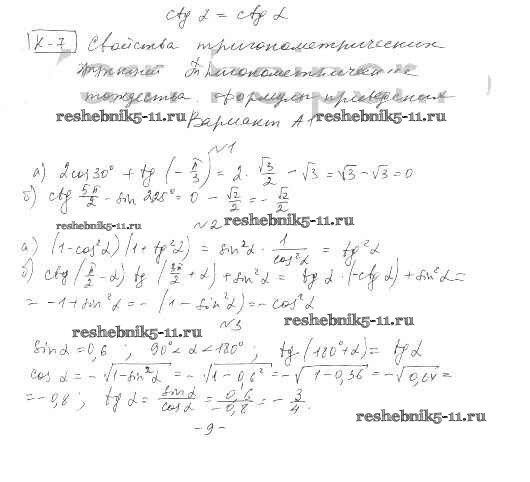 ctg α = ctg α
К-7 Свойства тригонометрических
функций Тригонометрические
тождества. Формулы приведения
reshebnik5-11.ru Вариант А1 reshebnik5-11.ru
№1
а) 2cos30° + tg (-π/3) = 2 · √3/2 - √3 = √3 - √3 = 0
б) ctg 5π/2 - sin 225° = 0 - √2/2 = - √2/2
reshebnik5-11.ru №2 reshebnik5-11.ru
а) (1-cos²α)(1+tg²α) = sin²α · 1/cos²α = tg²α
б) ctg(π/2 - α) tg(3π/2 + α) + sin²α = tg α · (-ctg α) + sin²α =
= -1 + sin²α = - (1 - sin²α) = - cos²α
reshebnik5-11.ru №3 reshebnik5-11.ru
sin α = 0,6 ; 90° < α < 180° ; tg(180°+α) = tg α
cos α = -√1-sin²α = -√1-0,6² = -√1-0,36 = -√0,64 =
= -0,8 ; tg α = sin α/cos α = 0,6/-0,8 = - 3/4.
reshebnik5-11.ru
-9-